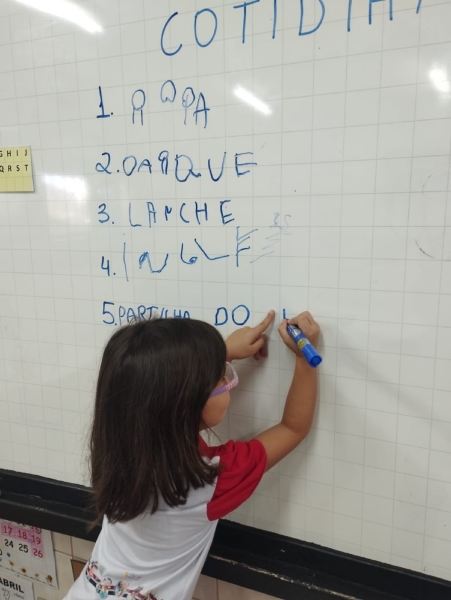 COTIDI
1. R O P A
2. O A R Q U E
3. LANCHE
4. I N G L E
5. PARTILHA DO
G H I J
Q R S T
17 18 19
24 25 26
ABRIL